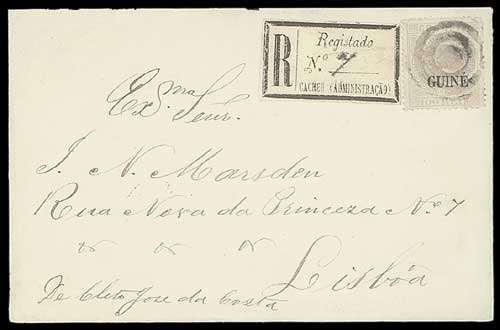 R
Registado
N.º 7
CACHEU (ADMINISTRAÇÃO)
GUINÉ
100 REIS
Ex.ma Senr.
J. N. Marsden
Rua Nova da Princeza N.º 7
Lisbôa
De Cleto José da Costa